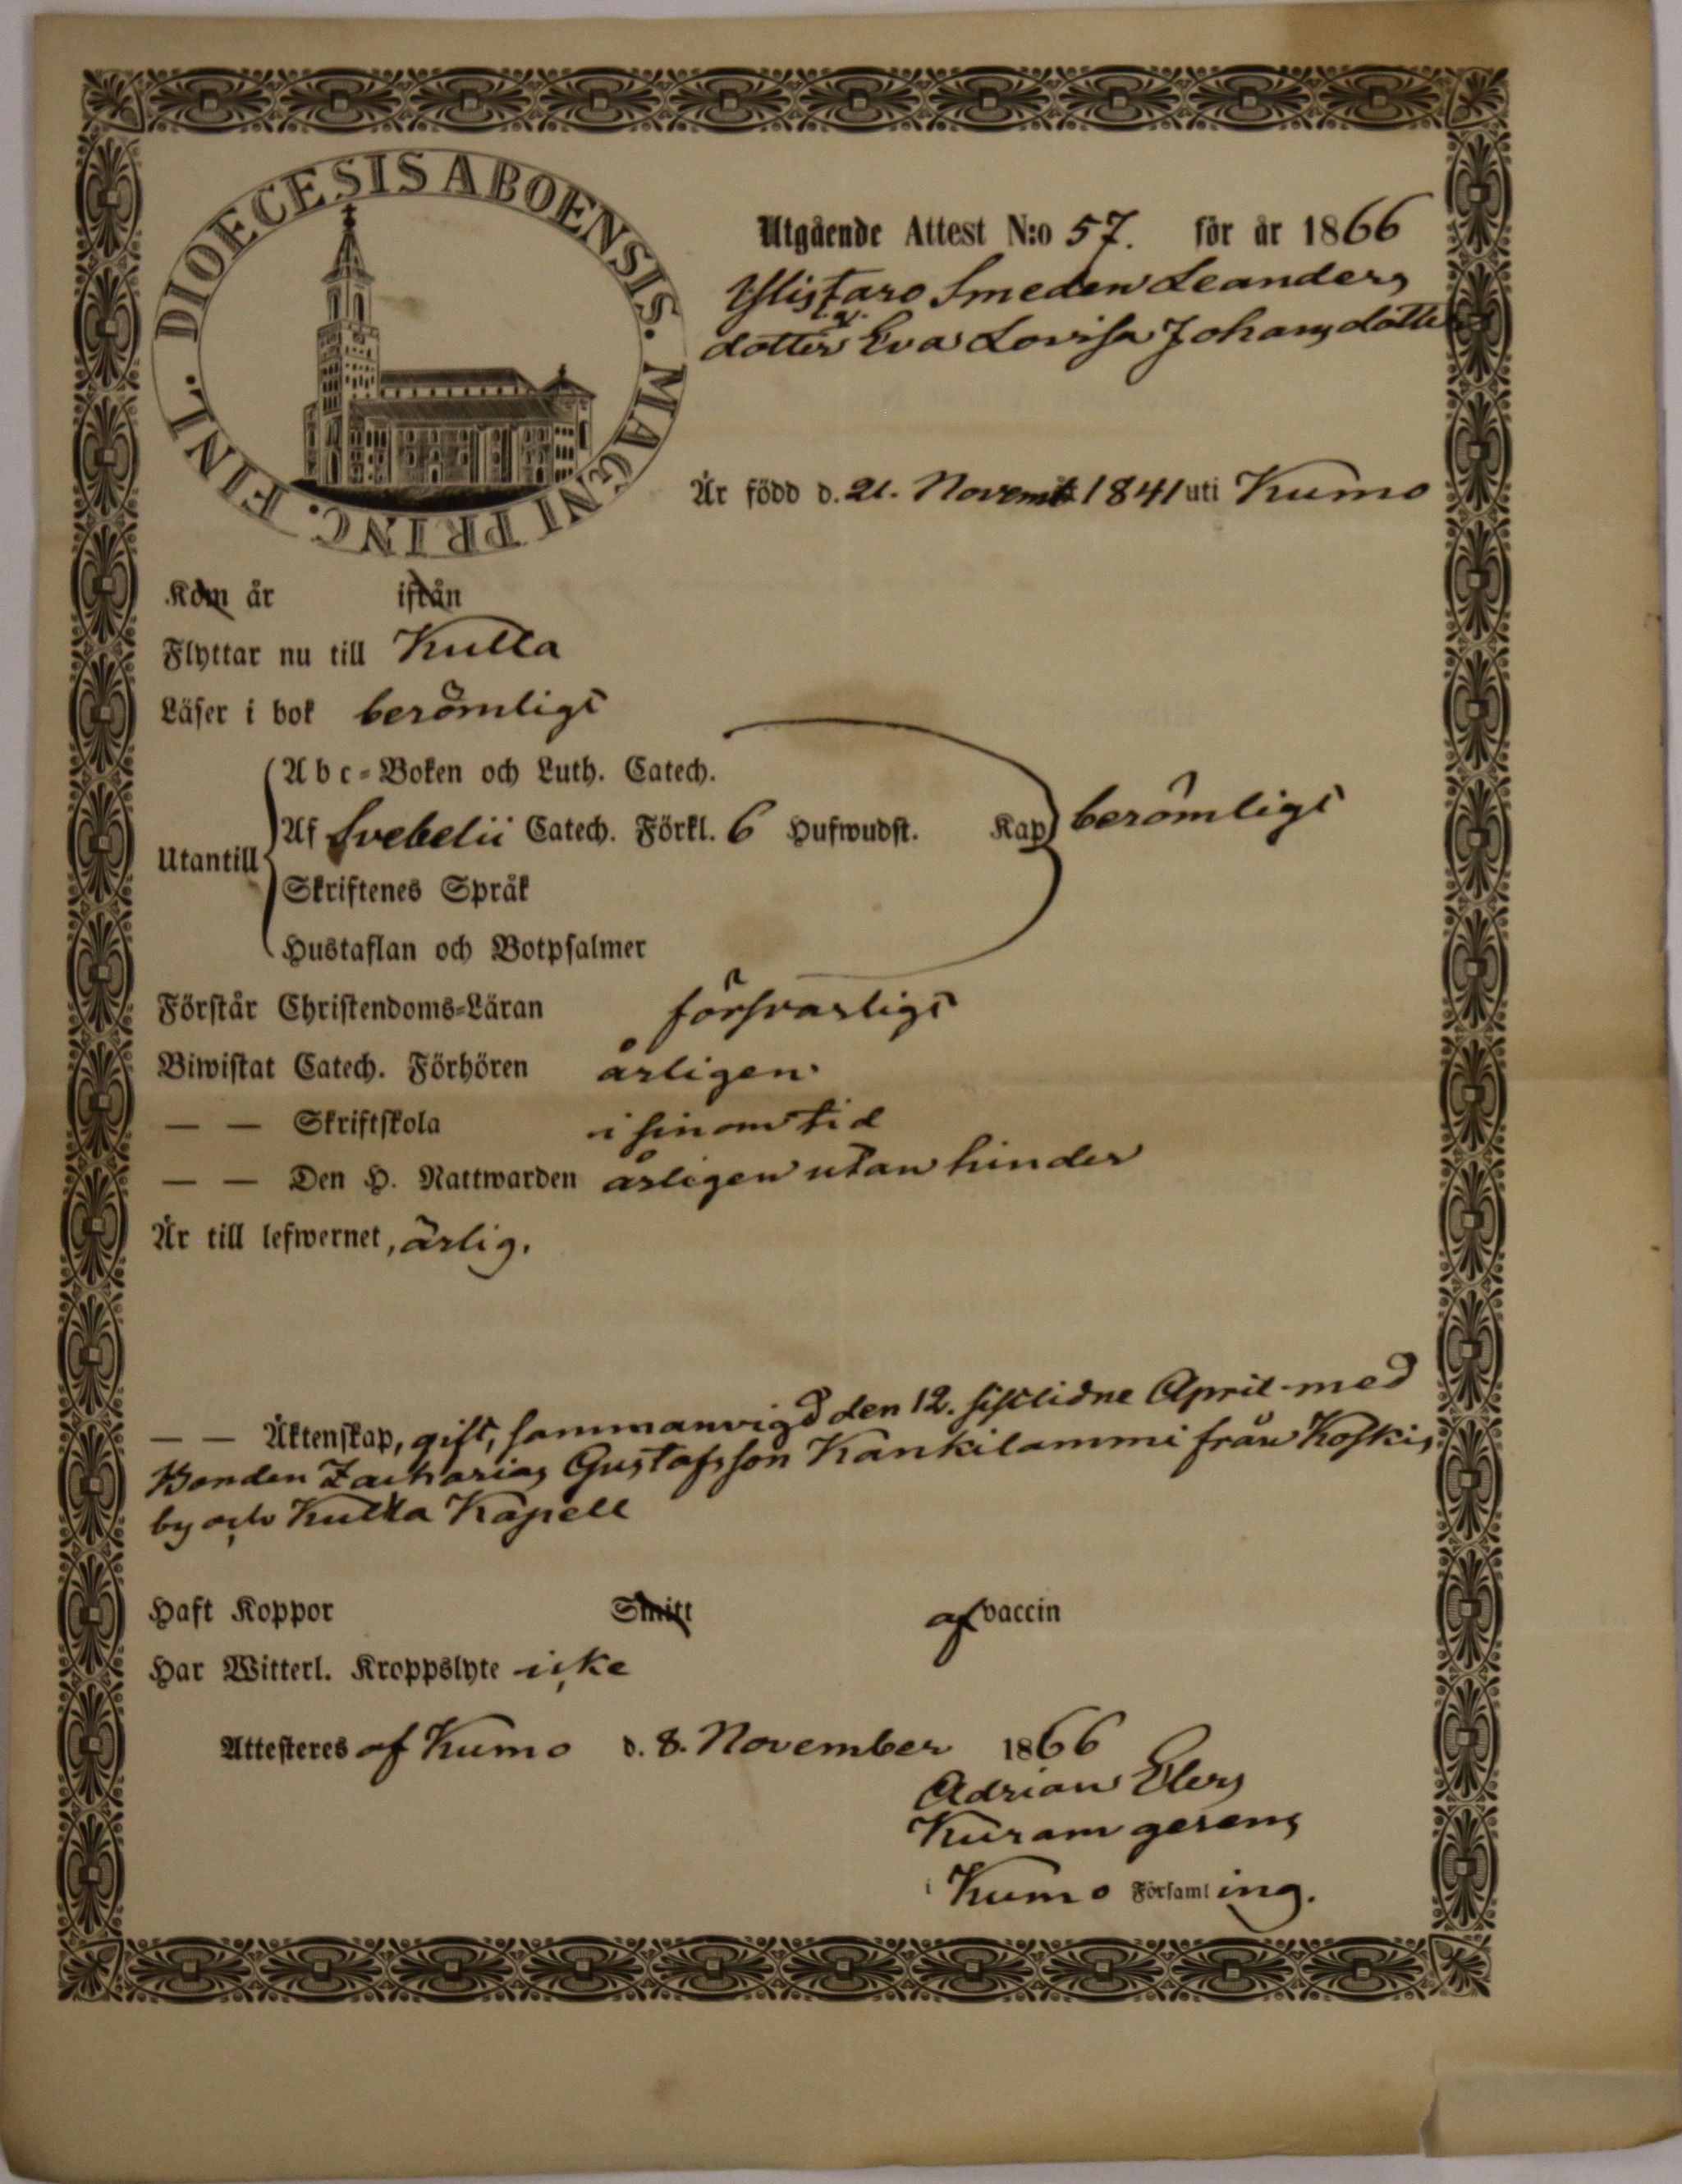 DIOECESIS ABOENSIS. MAGNI PRINC. FINL.
Utgående Attest N:o 57. för år 1866
Ylistaro Smeden Leanders
dotter Eva Lovisa Johansdotter
Är född d. 21. Novemb 1841 uti Kumo
Kom år ifrån
Flyttar nu till Kulla
Läser i bok berömligt
Abc-Boken och Luth. Catech.
Af Svebelii Catech. Förkl. 6 Hufwudst. Kap berömligt
Utantill
Skriftenes Språk
Hustaflan och Botpsalmer
Förstår Christendoms-Läran försvarligt
Biwistat Catech. Förhören årligen
— — Skriftskola i sinom tid
— — Den H. Nattwarden årligen utan hinder
Är till lefwernet, ärlig.
— — Äktenskap, gift, sammanvigd den 12. sistlidne April med
Bonden Zacharias Gustafsson Kankilammi från Koskis
by och Kulla Kapell
Haft Koppor Smitt af vaccin
Har Witterl. Kroppslyte icke
Attesteres af Kumo d. 8. November 1866
Adrian Elers
Kuram gerens
i Kumo Församling.